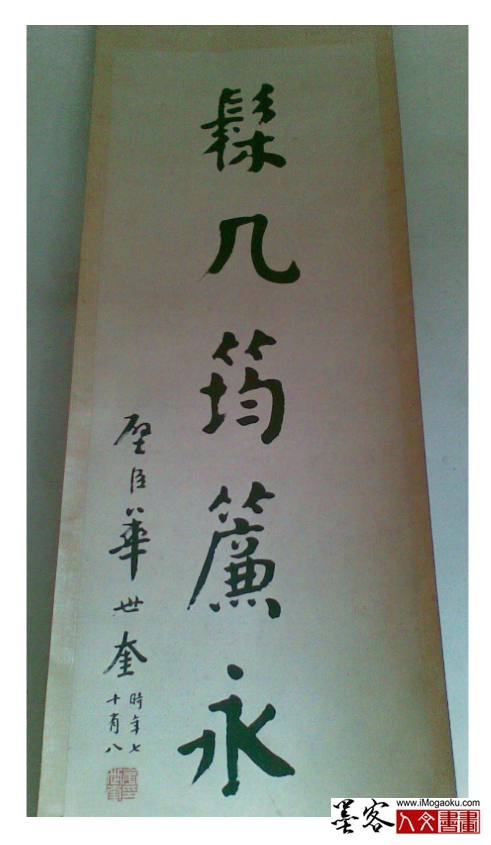 髹几筠簾永
璧臣華世奎
時年七
十有八
墨客
www.iMogaoku.com
人文書畫